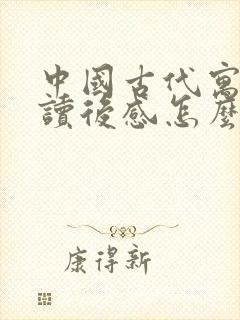 中國古代寓
讀後感怎麼
康得新